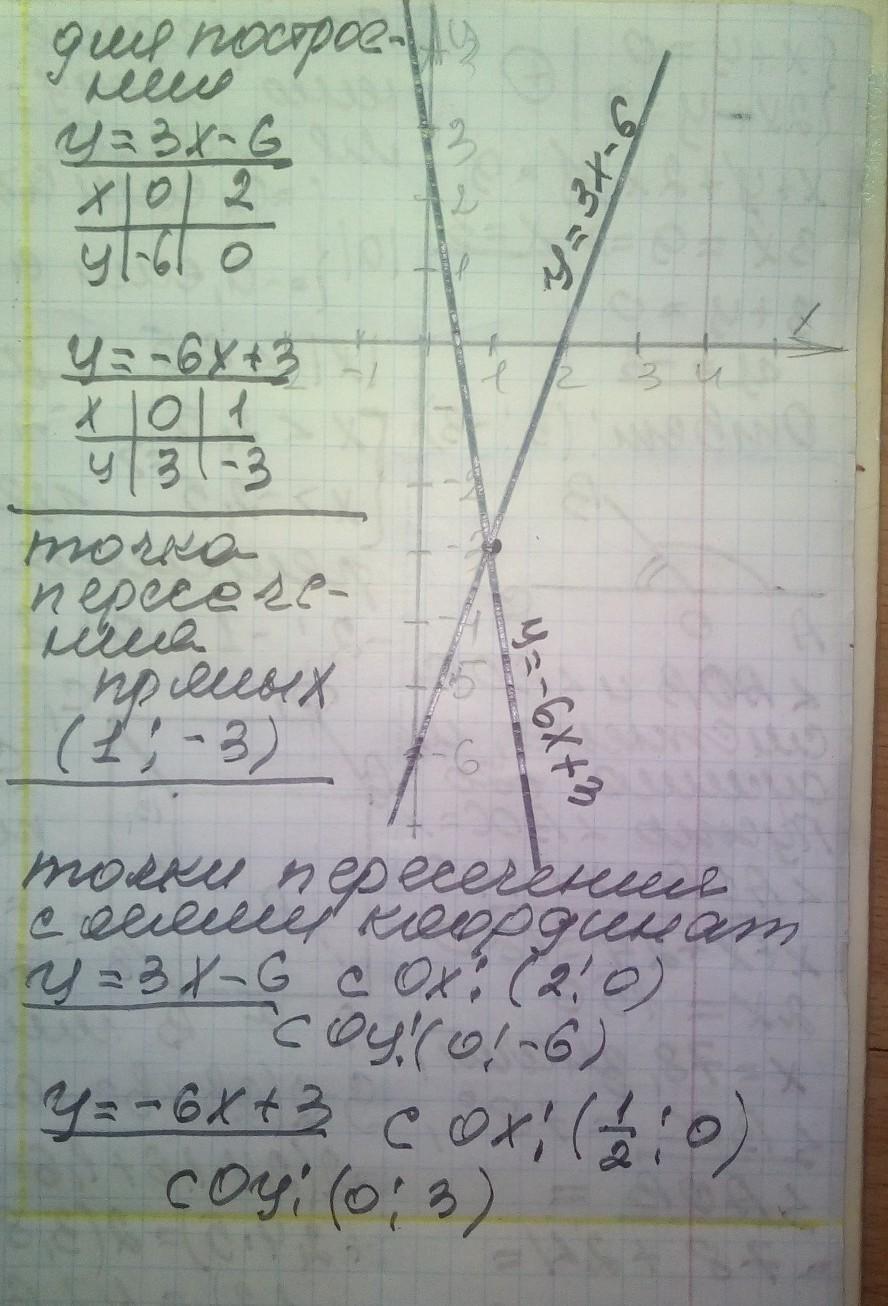 для построе-
ния
y = 3x - 6
x | 0 | 2
y | -6 | 0
y = -6x + 3
x | 0 | 1
y | 3 | -3
точка
пересече-
ния
прямых
(1; -3)
y
3
2
1
x
-1
1
2
3
4
-2
-3
-4
-5
-6
y = 3x - 6
y = -6x + 3
точки пересечения
с осями координат
y = 3x - 6 с Ox: (2; 0)
с Oy: (0; -6)
y = -6x + 3 с Ox: (1/2; 0)
с Oy: (0; 3)